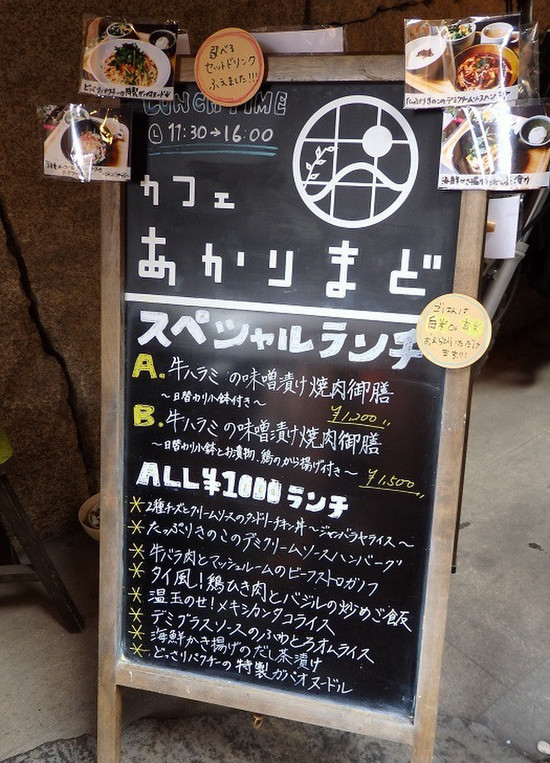 選べる
セットドリンク
ふえました!!!
LUNCH TIME
11:30→16:00
カフェ
あかりまど
スペシャルランチ
A. 牛ハラミの味噌漬け焼肉御膳
〜日替わり小鉢付き〜
¥1,200
B. 牛ハラミの味噌漬け焼肉御膳
〜日替わり小鉢とお漬物、鶏のから揚げ付き〜
¥1,500
ALL ¥1000 ランチ
*2種チーズとクリームソースのタンドリーチキン丼〜ジャンバラヤライス〜
*たっぷりきのこのデミクリームソースハンバーグ
*牛バラ肉とマッシュルームのビーフストロガノフ
*タイ風!鶏ひき肉とバジルの炒めご飯
*温玉のせ!メキシカンタコライス
*デミグラスソースのふわとろオムライス
*海鮮かき揚げのだし茶漬け
*どっさりパクチーの特製ガパオヌードル
ごはんは
白米or玄米
お選びいただけ
ます!!!